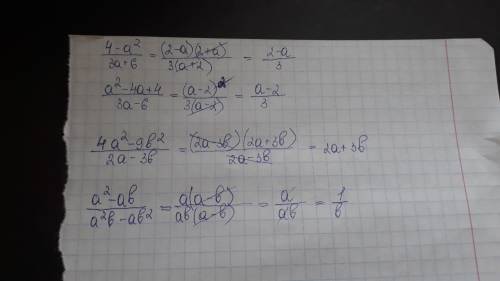 (4-a²)/(3a+6) = ((2-a)(2+a))/(3(a+2)) = (2-a)/3
(a²-4a+4)/(3a-6) = (a-2)²/(3(a-2)) = (a-2)/3
(4a²-9b²)/(2a-3b) = ((2a-3b)(2a+3b))/(2a-3b) = 2a+3b
(a²-ab)/(a²b-ab²) = (a(a-b))/(ab(a-b)) = a/(ab) = 1/b